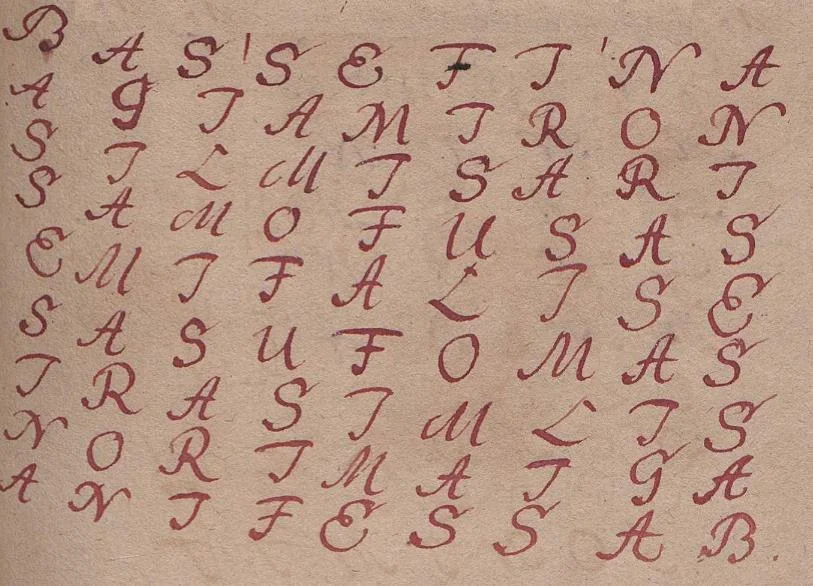 B A S ' S E F T ' N A
A G T A M T R O N
S T L M T S A R T
S A M O F U S A S
E M T F A L T S E
S A S U F O M A S
T R A S T M L T S
N O R T M A T G A
A N T F E S S A B.